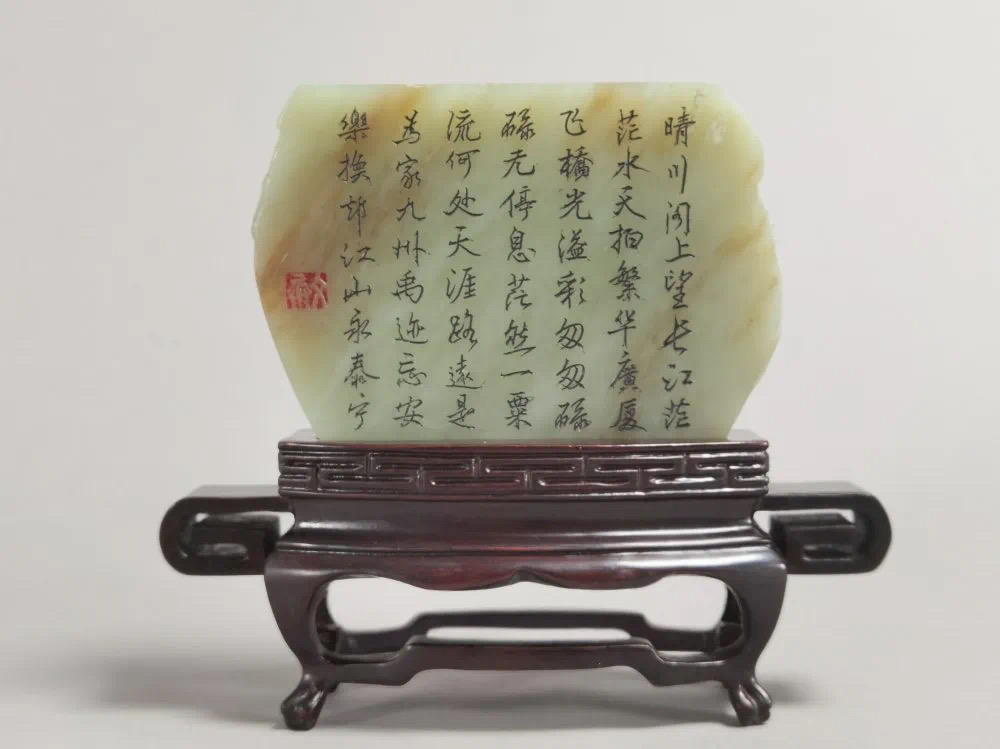 晴川阁上望长江茫
茫水天拍繁华廣厦
飞橋光溢彩匆匆碌
碌无停息茫然一粟
流何处天涯路遠是
为家九州禹迹忘安
樂换却江山永泰宁